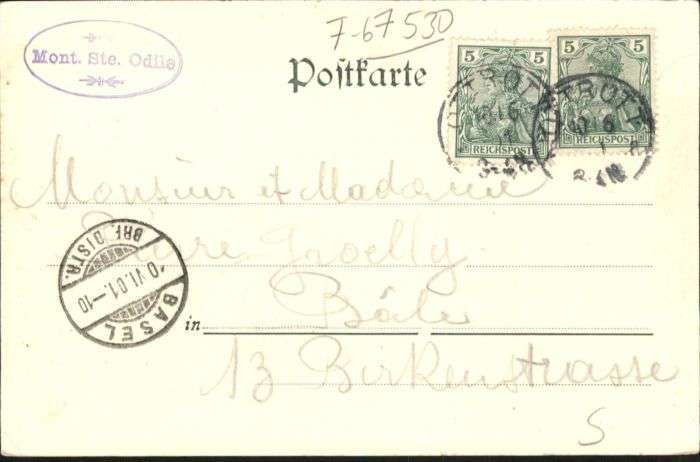 7-67530
Mont. Ste. Odile
Postkarte
5 5
REICHSPOST
5 5
REICHSPOST
OTTROTT
10 6
OTTROTT
10 6
Monsieur et Madame
Bâle
in
13 Birkenstrasse
BASEL
0 VI.01.-10
BRF. DISTR.
S